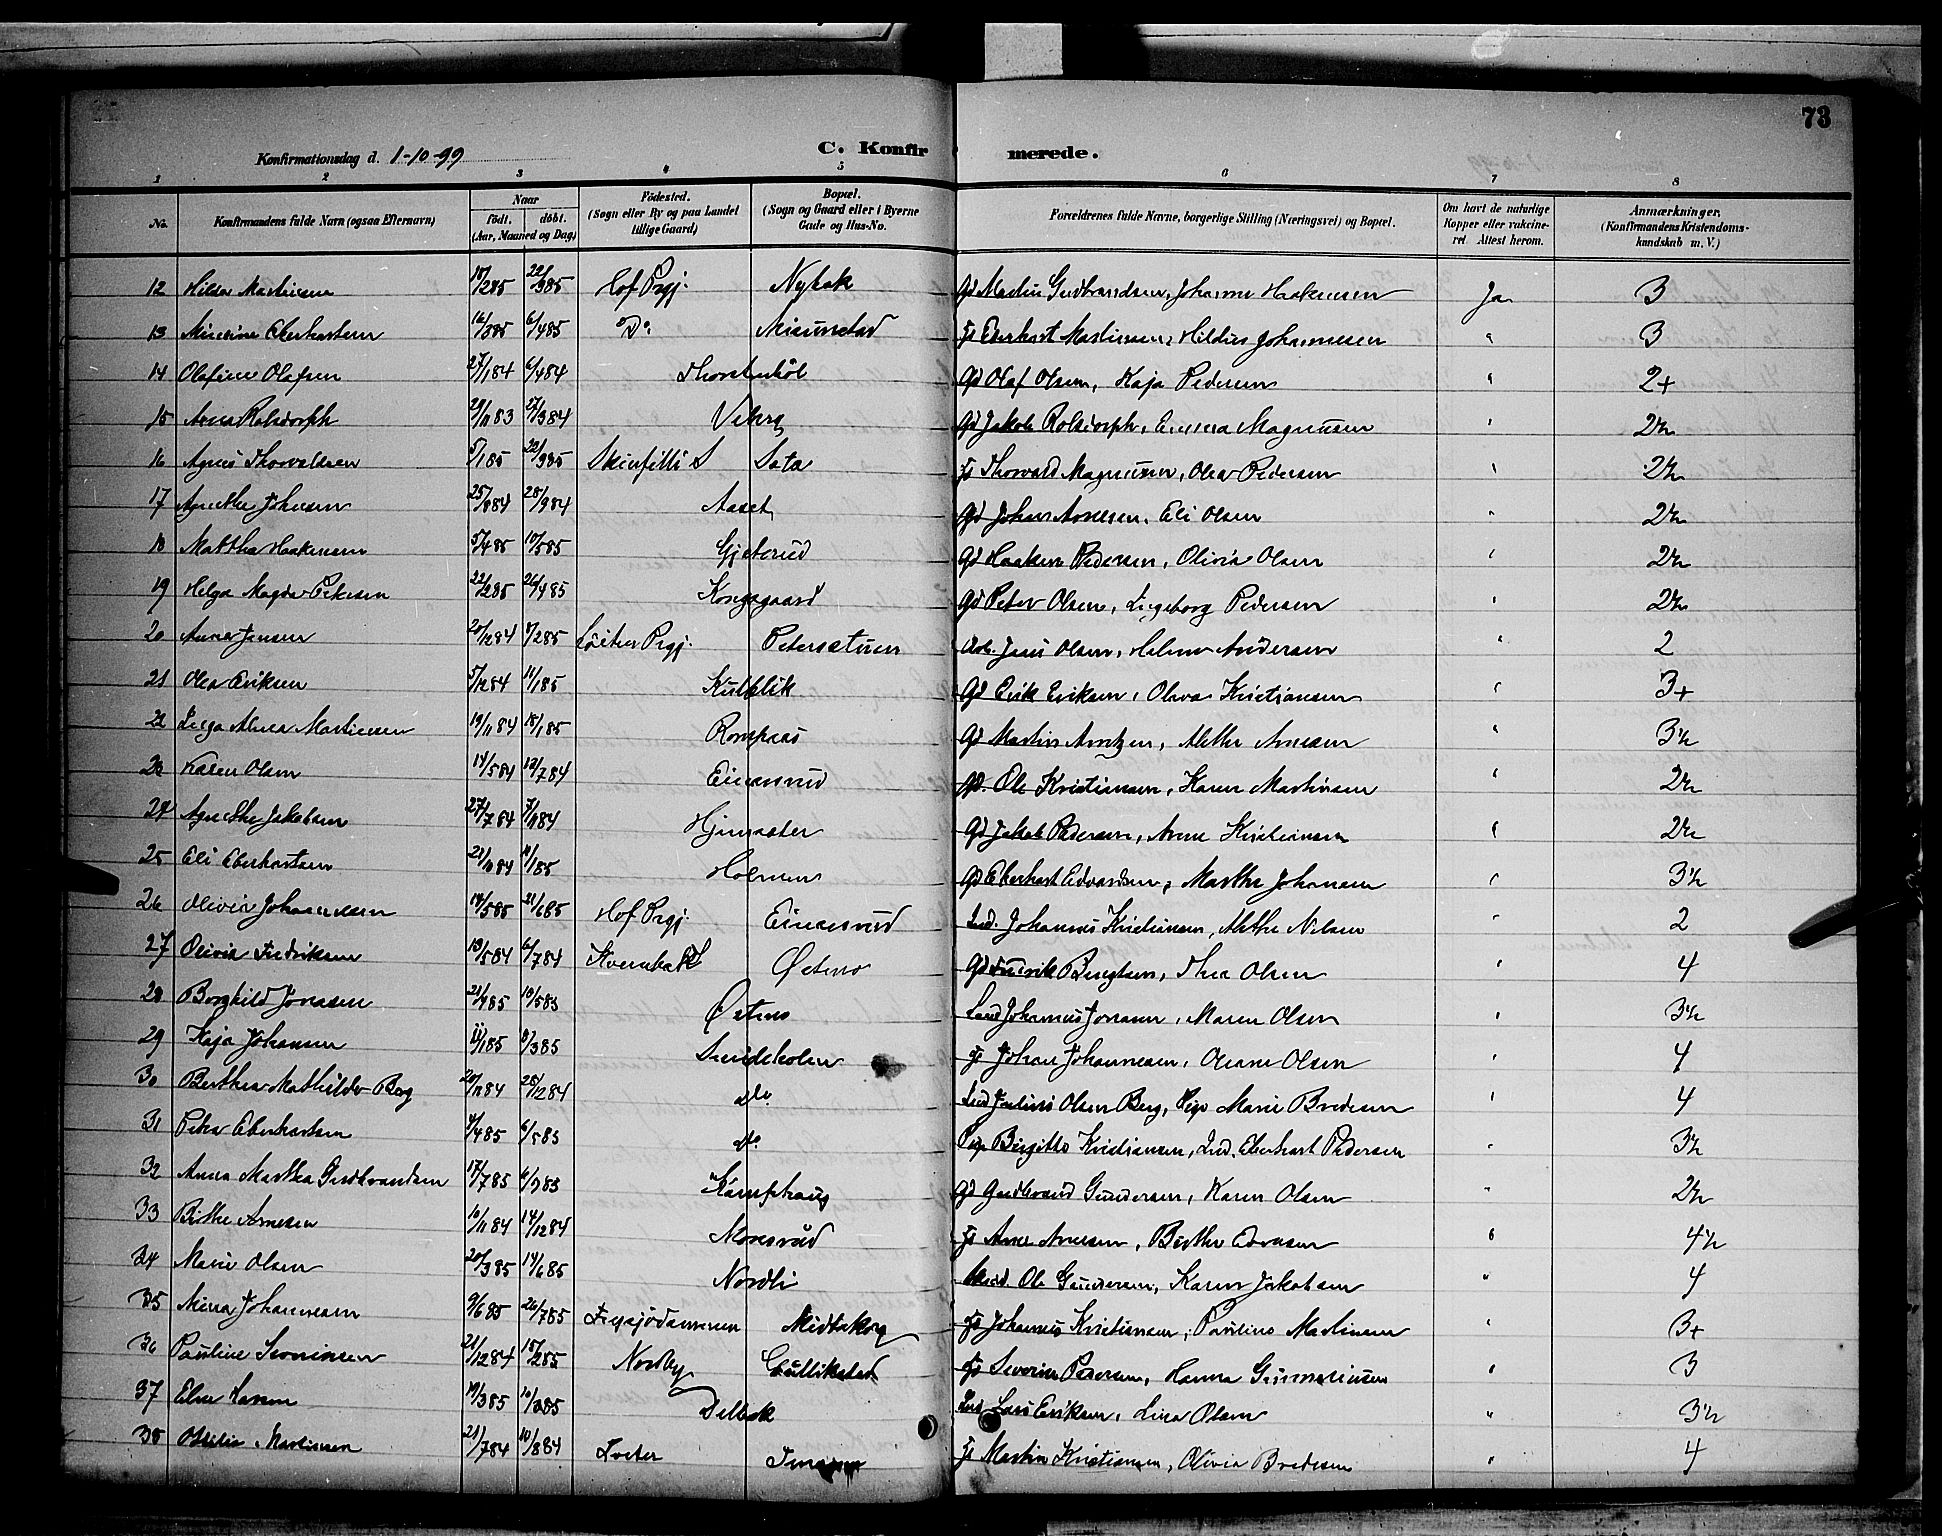 73
Konfirmationsdag d. 1-10-99
C. Konfirmerede.
1 2 3 4 5 6 7 8
No. Konfirmandens fulde Navn (ogsaa Efternavn) Naar født. døbt. (Aar, Maaned og Dag) Fødested. (Sogn eller By og paa Landet tillige Gaard) Bopæl. (Sogn og Gaard eller i Byerne Gade og Hus-No. Forældrenes fulde Navne, borgerlige Stilling (Næringsvei) og Bopæl. Om havt de naturlige Kopper eller vakcineret. Attest herom. Anmærkninger. (Konfirmandens Kristendomskundskab m. V.)
12 Hilda Martinsen 22/385 Hof Prgj. Nybak Gd Martin Gudbrandsen, Johanne Haakensen Ja 3
13 Eberhartsen 16/385 6/485 Do Eberhart Martinsen, Johannesen " 3
14 Olafine Olafsen 27/184 6/484 Gd Olaf Olsen, Kaja Pedersen " 2+
15 Anna Rolsdorph 29/1183 27/384 Viberg Gd Jakob Rolsdorph, Emma Magnusen " 2½
16 Agnes Thorvaldsen 5/185 22/385 Sata Fs Thorvald Magnusen, Olea Pedersen " 2½
17 Agnethe Johnsen 25/884 28/984 Aaset Gd Johan Arnesen, Eli Olsen " 2½
18 Martha Haakensen 5/485 10/585 Gjeterud Gd Haaken Pedersen, Olivia Olsen " 2½
19 Helga Magda Petersen 22/285 26/485 Kongsgaard Gd Peter Olsen, Ingeborg Pedersen " 2½
20 Anna Jensen 20/1284 1/285 Løiten Prgj. Peterstuen Jens Olsen, Helene Andersen " 2
21 Olea Eriksen 5/1284 11/185 Kulblik Gd Erik Eriksen, Olava Kristiansen " 3+
22 Inga Alma Martinsen 19/1184 18/185 Romsaas Gd Martin Arntzen, Alethe Arnesen " 3½
23 Karen Olsen 14/584 13/784 Einarsrud Gd. Ole Kristiansen, Karen Martinsen " 2½
24 Agnethe Jakobsen 27/784 Gd Jakob Pedersen, Anne Kristiansen " 2½
25 Eli Eberhartsen Holmen Gd Eberhart Edvardsen, Marthe Johansen " 3½
26 Olivia Johannesen 14/585 21/685 Hof Prgj. Einarsrud Ind. Johannes Kristiansen, Alethe Nilsen " 2
27 Olivia Fredriksen 13/584 6/784 Kvernbak Østmo Gd Fredrik Bengtsen, Thea Olsen " 4
28 Borghild Jonasen 21/485 10/585 Østmo Ind Johannes Jonasen, Maren Olsen " 3½
29 Kaja Johansen 11/185 8/385 Sundeholen Fs Johan Johannesen, Oleane Olsen " 4
30 Berthea Mathilde Berg 20/1184 28/1284 do Ind Julius Olsen Berg, Pige Marie Bredesen " 4
31 Petra Eberhartsen 4/485 6/585 do. Pige Birgitte Kristiansen, Ind. Eberhart Pedersen " 3½
32 Anna Martha Gudbrandsen 17/785 Kamphaug Gd Gudbrand Gundersen, Karen Olsen " 2½
33 Birthe Arnesen 10/1184 14/1284 Monsrud Fs Arne Arnesen, Birthe " 4½
34 Marie Olsen 20/385 14/685 Nordli Ole Gundersen, Karen Jakobsen " 4
35 Mina Johannesen 9/685 26/785 Midtskog Fs Johannes Kristiansen, Pauline Martinsen " 3+
36 Pauline Severinsen 21/1284 15/285 Nordby Gullikstad Fs Severin Pedersen, Hanna Gunneriusen " 3
37 Elna Larsen 19/385 Delbek Ind Lars Eriksen, Lina Olsen " 3½
38 Othilie Martinsen 21/784 10/884 Fs Martin Kristiansen, Olivia Bredesen " 4